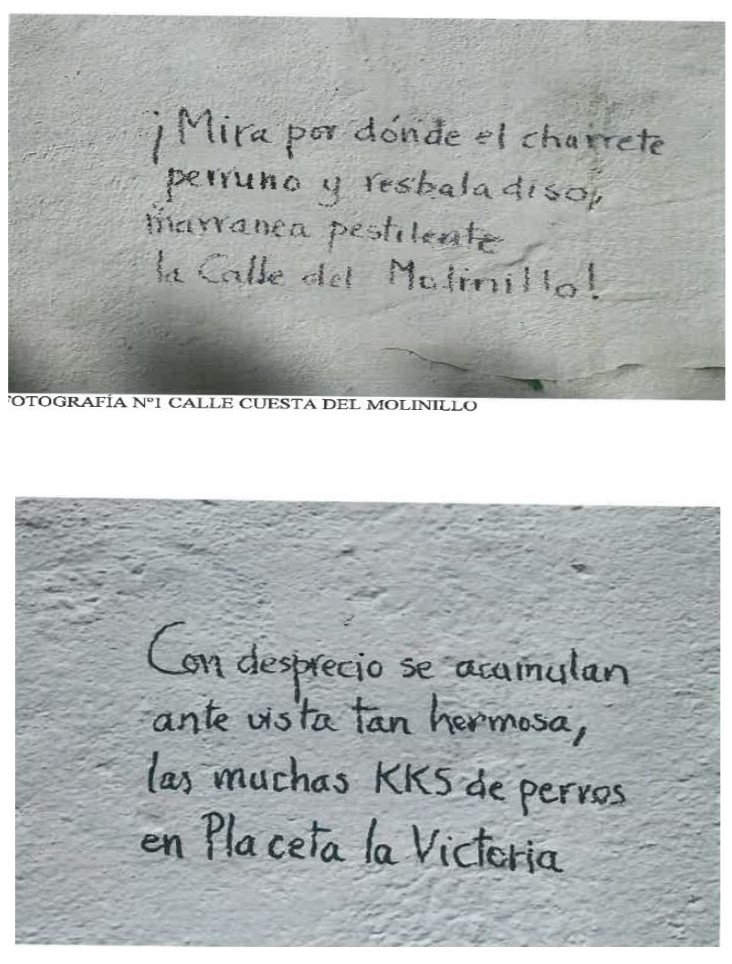 ¡Mira por dónde el charrete
perruno y resbaladiso,
marranea pestilente
la Calle del Molinillo!
OTOGRAFÍA Nº1 CALLE CUESTA DEL MOLINILLO
Con desprecio se acumulan
ante vista tan hermosa,
las muchas KKS de perros
en Placeta la Victoria